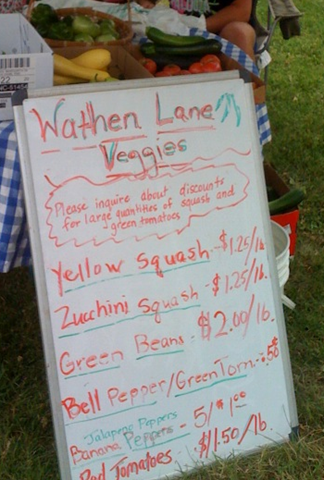 Wathen Lane
Veggies
Please inquire about discounts
for large quantities of squash and
green tomatoes
Yellow Squash - $1.25/lb.
Zucchini Squash - $1.25/lb.
Green Beans - $2.00/lb.
Bell Pepper/Green Tom. - .50¢
Jalapeno Peppers
Banana Peppers - 5/$1.00
Red Tomatoes - $1.50/lb.